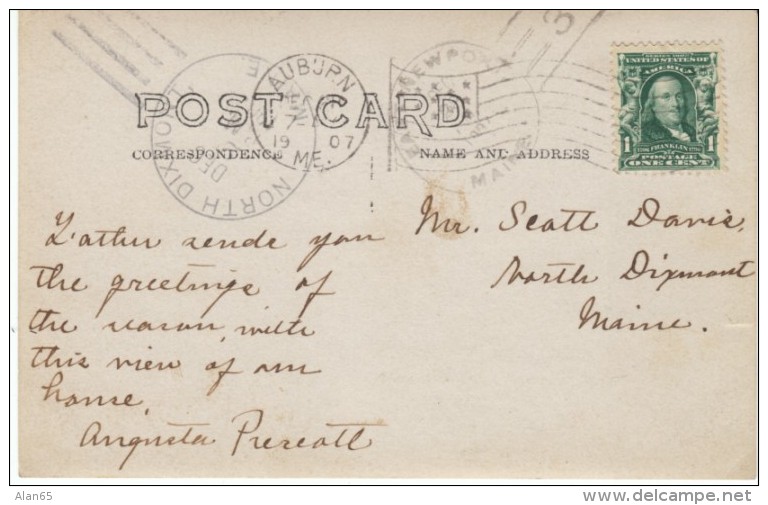 POST CARD
CORRESPONDENCE
NAME AND ADDRESS
AUBURN
JAN
7
19 07
ME.
NEWPORT
MAINE
NORTH DIXMONT
DEC
ME
3
SERIES 1902
UNITED STATES OF
AMERICA
1 FRANKLIN 1
POSTAGE
ONE CENT
Father sends you
the greetings of
the season, with
this view of our
home.
Augusta Prescott
Mr. Scott Davis,
North Dixmont
Maine.
Alan65
http://www.delcampe.net